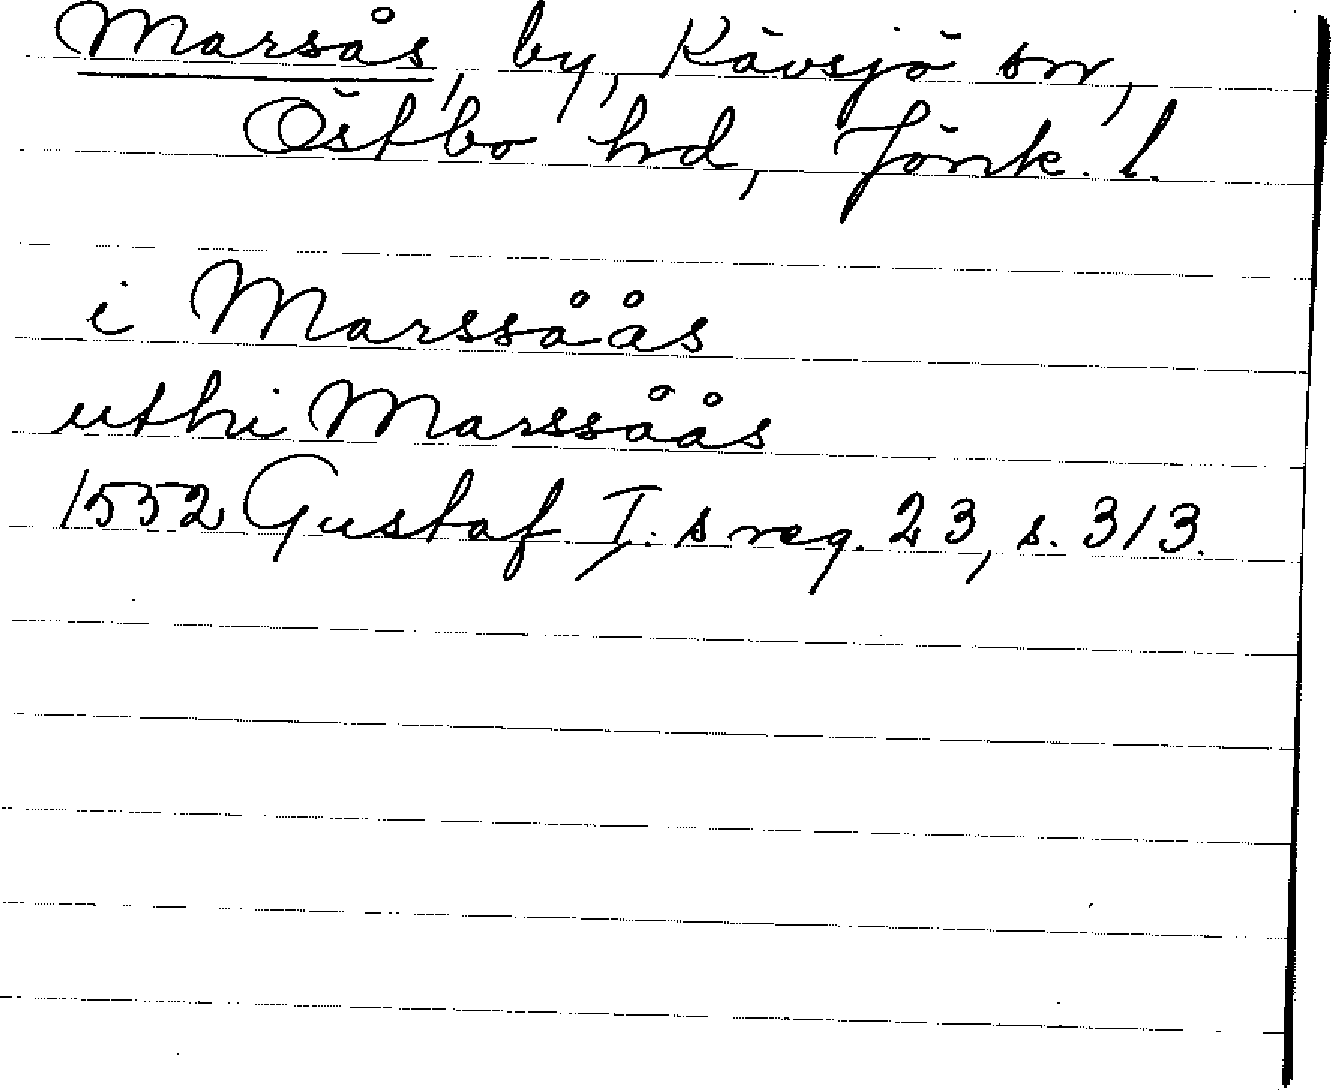 Marsås, by, Kävsjö sn,
Östbo hd, Jönk. l.
i Marssåås
uthi Marssåås
1552 Gustaf I:s reg. 23, s. 313.